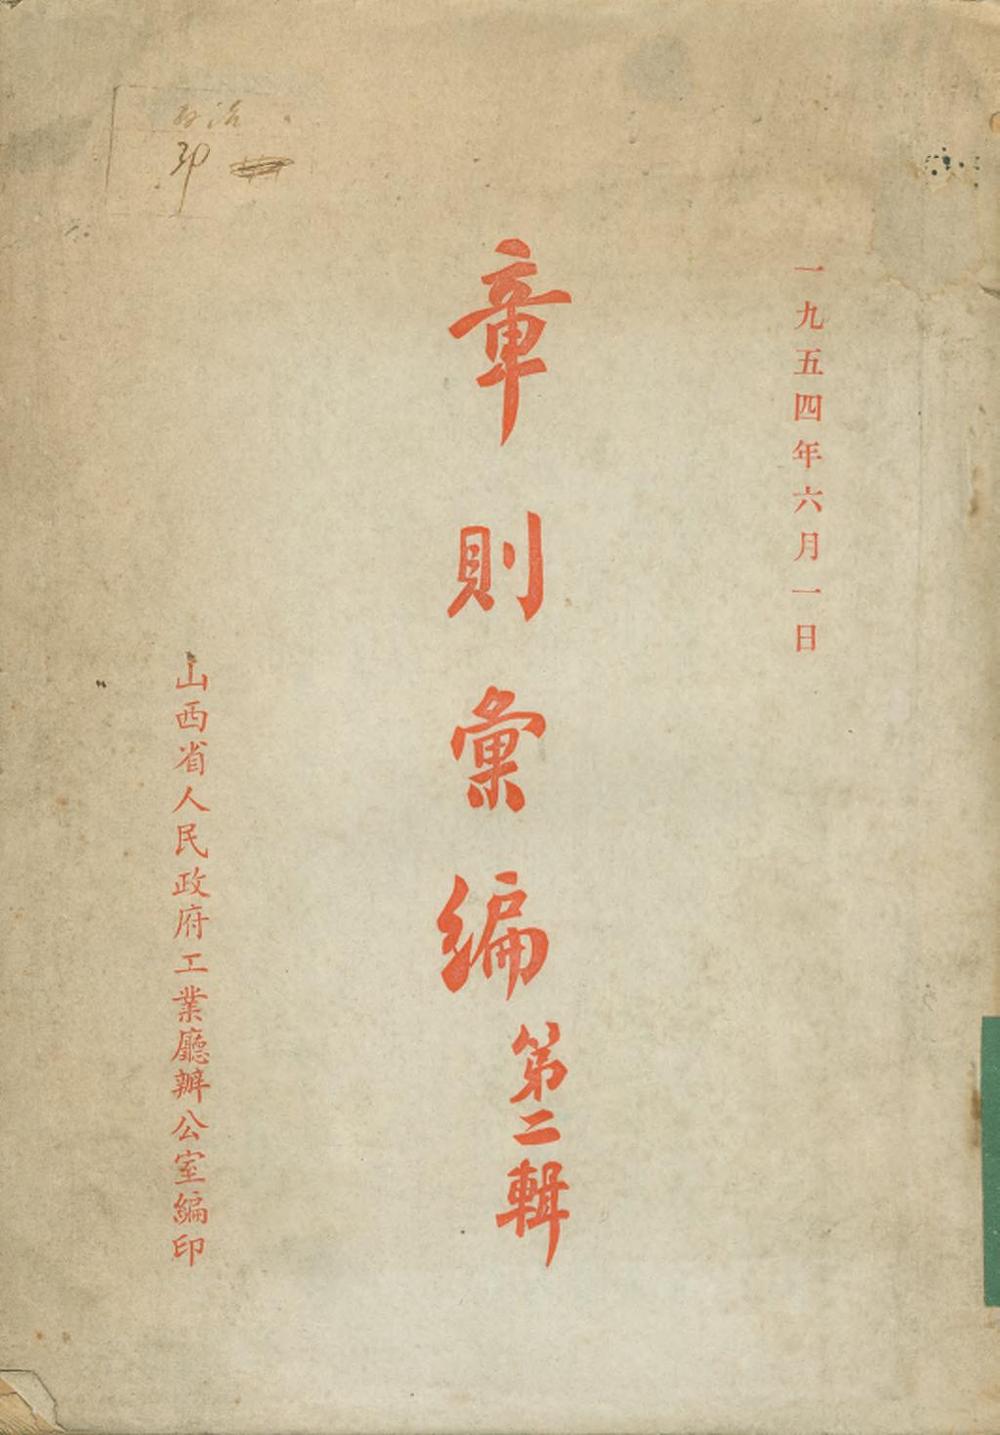 一九五四年六月一日
章則彙編
第二輯
山西省人民政府工業廳辦公室編印
政治